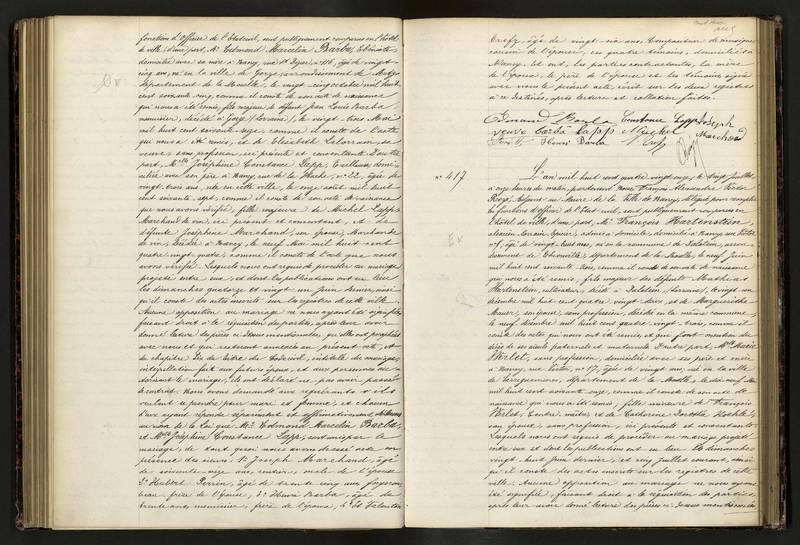 fonctions d'officier de l'Etat civil, sont publiquement comparus en l'hôtel
de ville, d'une part, Mr Edmond Marcelin Barba, Ebéniste,
domicilié avec sa mère à Nancy, rue St Dizier, no 116, âgé de vingt-
cinq ans, né en la ville de Gorze, arrondissement de Metz,
département de la Moselle, le vingt-cinq octobre mil huit
cent soixante-cinq, comme il conste de son acte de naissance
qui nous a été remis, fils majeur de défunt Jean Louis Barba,
menuisier, décédé à Gorze (Lorraine), le vingt-trois Mai
mil huit cent soixante-seize, comme il conste de l'acte
qui nous a été remis, et de Elisabeth sa
veuve, sans profession, ici présente et consentante. D'autre
part, Mlle Joséphine Constance Lapp, Tailleuse, domi-
ciliée avec son père à Nancy, rue de la Hache, no 22, âgée de
vingt-trois ans, née en cette ville, le onze août mil huit
cent soixante-sept, comme il conste de son acte de naissance
que nous avons vérifié, fille majeure de Michel Lapp,
Marchand de vin, ici présent et consentant, et de
défunte Joséphine Marchand, son épouse, Marchande
de vin, décédée à Nancy, le neuf Mai mil huit cent
quatre-vingt-quatre, comme il conste de l'acte que nous
avons vérifié. Lesquels nous ont requis de procéder au mariage
projeté entre eux, et dont les publications ont eu lieu
les dimanches quatorze et vingt-un Juin dernier, ainsi
qu'il conste des actes inscrits sur les registres de cette ville.
Aucune opposition au mariage ne nous ayant été signifiée,
faisant droit à la réquisition des parties, après leur avoir
donné lecture des pièces ci-dessus mentionnées, qu'elles ont
avec nous et qui resteront annexées au présent acte, et
du chapitre six du titre du Code civil, intitulé du mariage,
interpellation faite aux futurs époux, et aux personnes au-
torisant le mariage, ils ont déclaré ne pas avoir passé
de contrat. Nous avons demandé aux requérants s'ils
veulent se prendre pour mari et femme, et chacun
d'eux ayant répondu séparément et affirmativement, déclarons
au nom de la loi que Mr Edmond Marcelin Barba,
et Mlle Joséphine Constance Lapp, sont unis par le
mariage, de tout quoi nous avons dressé acte en
présence des sieurs 1o Joseph Marchand, âgé
de soixante-seize ans, rentier, oncle de l'épouse
2o Hubert Perrin, âgé de trente-cinq ans,
beau-frère de l'époux, 3o Henri Barba, âgé de
trente ans, menuisier, frère de l'époux, 4o et Valentin
Trefz, âgé de vingt-six ans, Compositeur de musique
cousin de l'épouse, ces quatre témoins, domiciliés à
Nancy. Et ont, les parties contractantes, la mère
de l'époux, le père de l'épouse et les témoins signé
avec nous le présent acte, écrit sur les deux registres
à ce destinés, après lecture et collation faites.
Edmond Barba Constance Lapp Joseph
veuve Barba Lapp Michel Marchand
Henri Barba Trefz
No 417
L'an mil huit cent quatre-vingt-onze, le onze Juillet
à onze heures du matin, pardevant Nous François Alexandre
Adjoint au Maire de la Ville de Nancy, délégué pour remplir
les fonctions d'officier de l'Etat civil, sont publiquement comparus en
l'hôtel de ville, d'une part, Mr François Hartenstein
âgé de vingt-huit ans, né en la commune de arron-
dissement de Thionville, département de la Moselle, le neuf Juin
mil huit cent soixante-trois, comme il conste de son acte de naissance
qui nous a été remis, fils majeur des défunts Mathias
Hartenstein, cultivateur, décédé à (Lorraine), le vingt-un
décembre mil huit cent quatre-vingt-deux, et de Marguerithe
Maurer, son épouse, sans profession, décédée en la même commune,
le neuf décembre mil huit cent quatre-vingt-trois, comme il
conste des actes qui nous ont été remis, et qui font mention du
décès de ses aïeuls paternels et maternels. D'autre part, Mlle Marie
Verlet, sans profession, domiciliée avec ses père et mère
à Nancy, rue no 17, âgée de vingt ans, née en la ville
de Sarreguemines, département de la Moselle, le dix-neuf
mil huit cent soixante-onze, comme il conste de son acte de
naissance qui nous a été remis, fille mineure de François
Verlet, et de Catherine
son épouse, sans profession, ici présents et consentants.
Lesquels nous ont requis de procéder au mariage projeté
entre eux et dont les publications ont eu lieu les dimanches
vingt-huit Juin dernier, et cinq Juillet courant, ainsi
qu'il conste des actes inscrits sur les registres de cette
ville. Aucune opposition au mariage ne nous ayant
été signifiée, faisant droit à la réquisition des parties,
après leur avoir donné lecture des pièces ci-dessus mentionnées